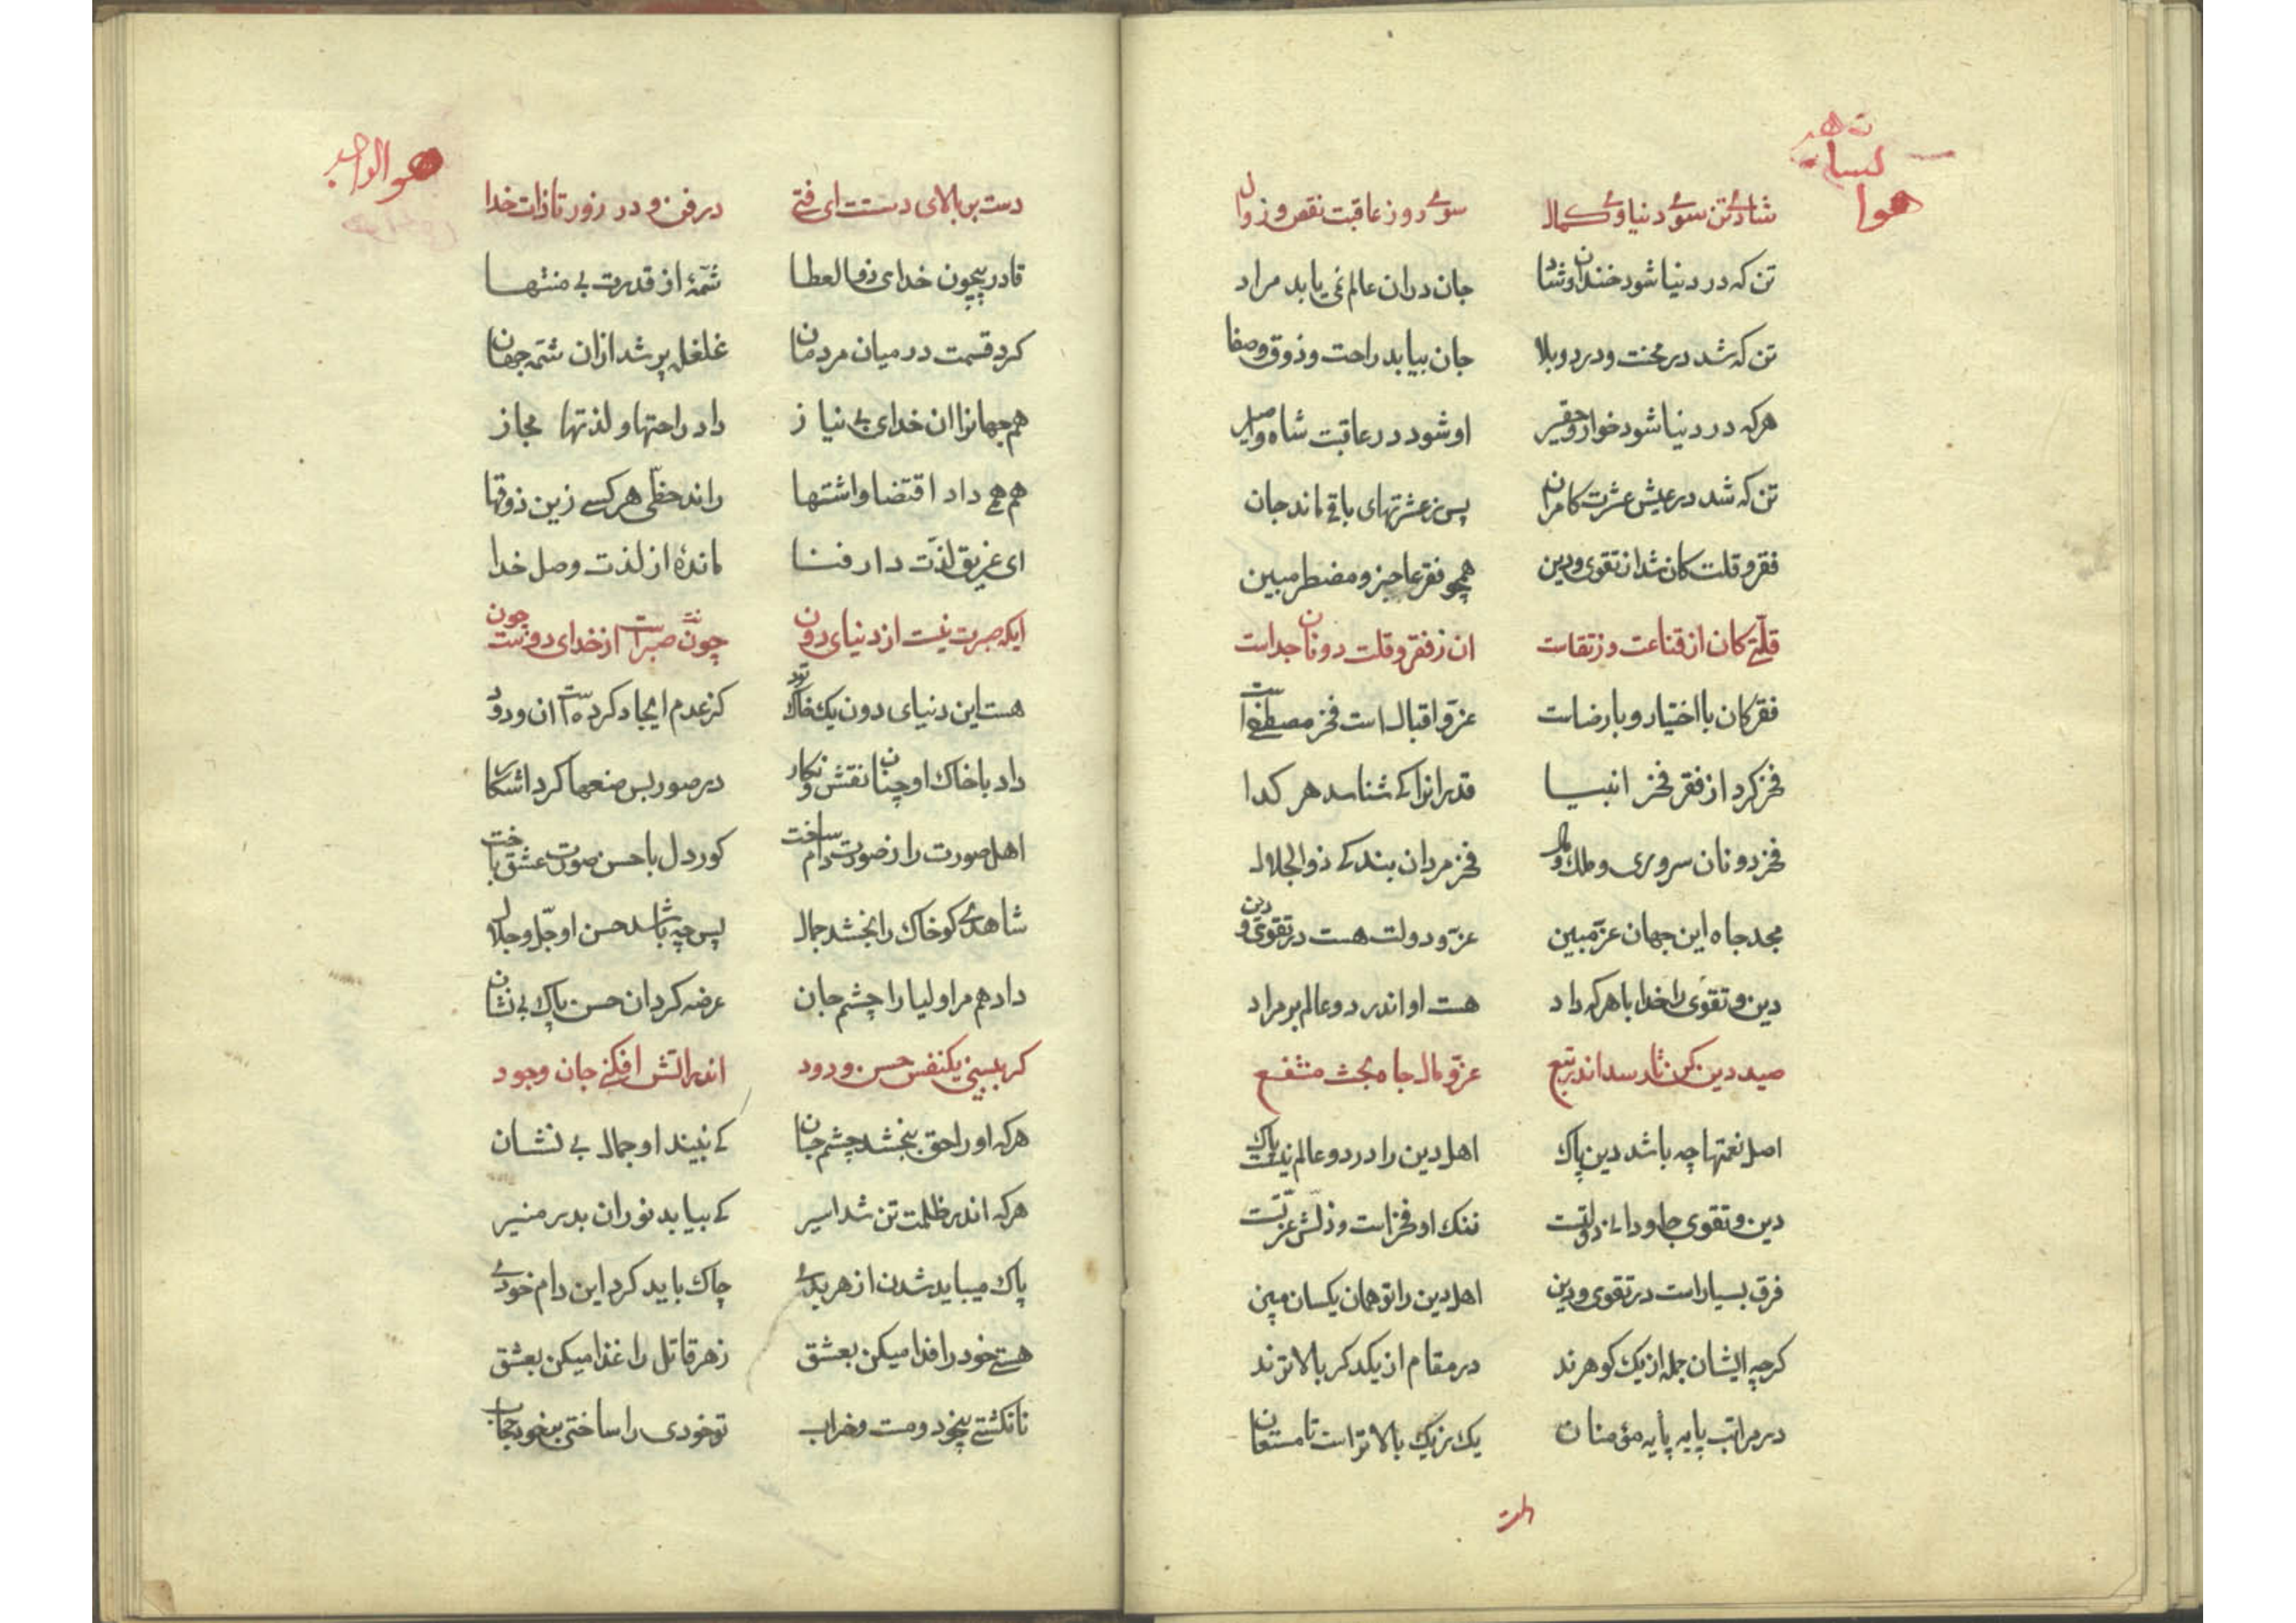 شادئ تن سوئ دنیاوئ کمال سوئ روز عاقبت نقص و زوال
تن که در دنیا شود خندان و شاد جان دران عالم نمی یابد مراد
تن که شد در محنت و درد و بلا جان بیابد راحت و ذوق و صفا
هرکه در دنیا شود خوار و حقیر او شود در عاقبت شاه و امیر
تن که شد در عیش عشرت کامران پس ز عشرتهای باقی ماند جان
فقر و قلت کان شد از تقوی و دین همچو فقر عاجز و مضطر مبین
قلّتی کان از قناعت وز تقاست ان ز فقر و قلت دونان جداست
فقر کان با اختیار و با رضاست عزّ و اقبال است فخر مصطفی است
فخر کرد از فقر فخر انبیا قدر انرا کی شناسد هر کدا
فخر دونان سروری و ملک و مال فخر مردان بندکی ذوالجلال
مجد جاه این جهان عزّ مبین عزّ و دولت هست در تقوی و دین
دین و تقوی را خدا با هرکه داد هست او اندر دو عالم بر مراد
صید دین کن تا رسد اندر تبع عزّ و مال جاه بخت منتفع
اصل نعمتها چه باشد دین پاک اهل دین را در دو عالم نیست باک
دین و تقوی جاودانی دولتست ننک او فخر است و ذلّش عزّتست
فرق بسیار است در تقوی و دین اهل دین را تو همان یکسان مبین
کرچه ایشان جمله از یک کوهرند در مقام از یکدکر بالاترند
در مراتب پایه پایه مؤمنان یک ز یک بالاتر است تا مستعان
هو الواحد
دست بر بالای دستست ای فتی در فن و در زور تا ذات خدا
قادر بیچون خدای ذو العطا شمّهٔ از قدرت بی منتها
کرد قسمت در میان مردمان غلغل پر شد ازان شمّه جهان
هم جهانرا ان خدای بی نیاز داد راحتها و لذتها مجاز
هم همی داد اقتضا و اشتها راند حظّی هر کسی زین ذوقها
ای غریق لذّت دار فنا مانده از لذت وصل خدا
ایکه صبرت نیست از دنیای دون چونت صبر است از خدای دوست چون
هست این دنیای دون یک خاک تود کز عدم ایجاد کرده است ان ودود
داد با خاک او چنان نقش و نکار در صور بس صنعها کرد اشکار
اهل صورت را ز صورت دام ساخت کور دل با حسن صورت عشق باخت
شاهدی کو خاک را بخشد جمال پس چه باشد حسن او جلّ و جلال
داد هم مر اولیا را چشم جان عرضه کرد ان حسن پاک بی نشان
کر ببینی یکنفس حسن ودود اندر اتش افکنی جان وجود
هرکه او را حق ببخشد چشم جان کی نبیند او جمال بی نشان
هرکه اندر ظلمت تن شد اسیر کی بیابد نور ان بدر منیر
پاک میباید شدن از هر بدی چاک باید کرد این دام خودی
هستی خود را فدا میکن بعشق زهر قاتل را غذا میکن بعشق
تا نکشتی بیخود و مست و خراب تو خودی را ساختی بر خود حجاب